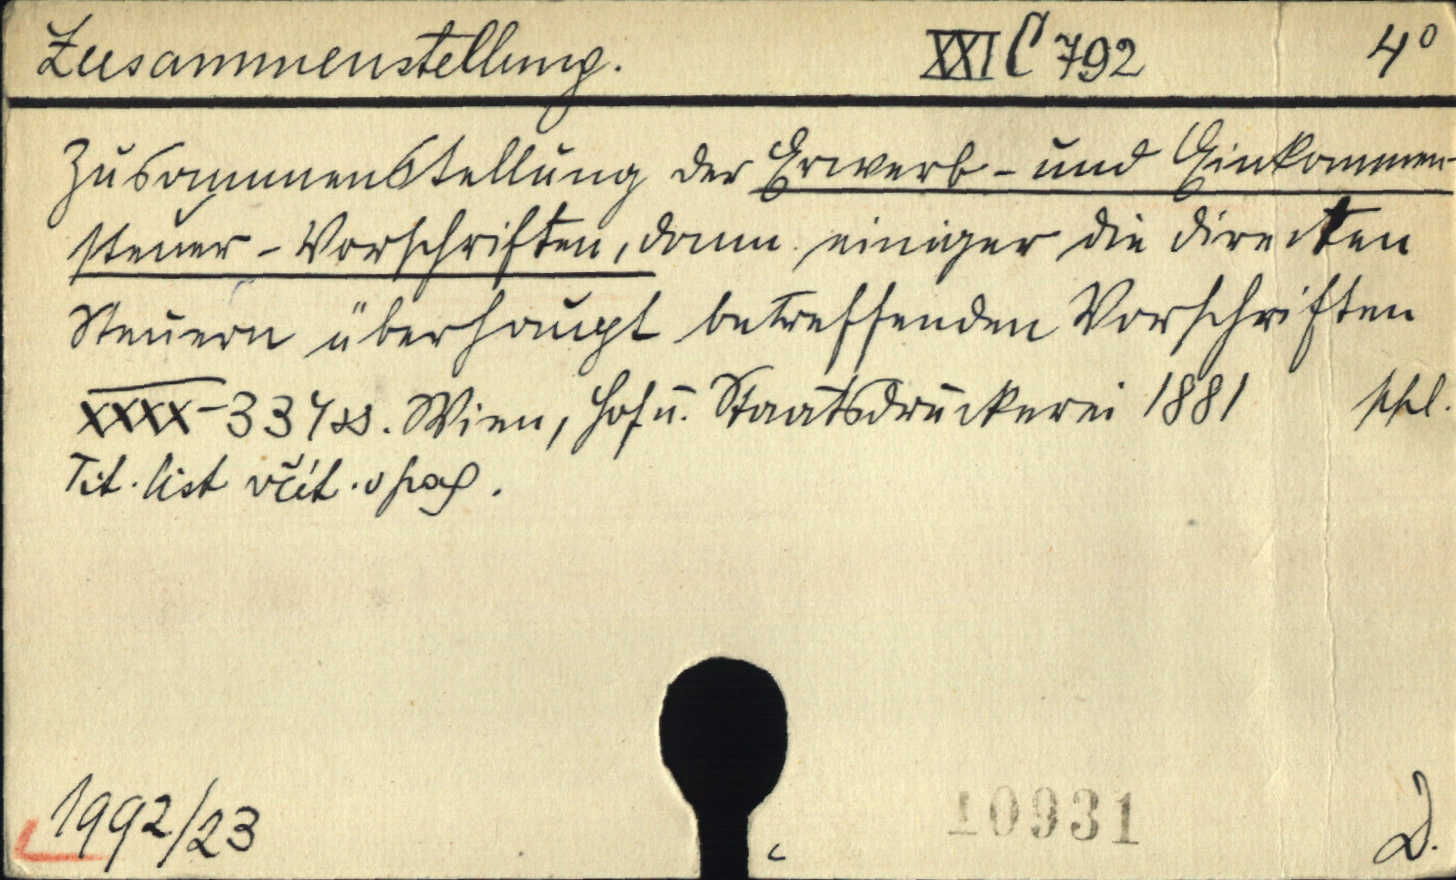 Zusammenstellung. XXI C 792 4°
Zusammenstellung der Erwerb- und Einkommen-
steuer-Vorschriften, dann einiger die directen
Steuern überhaupt betreffenden Vorschriften
XXXX-337 ss. Wien, Hof u. Staatsdruckerei 1881 ppl.
Tit. list včít. v pag.
1992/23 10931 D.